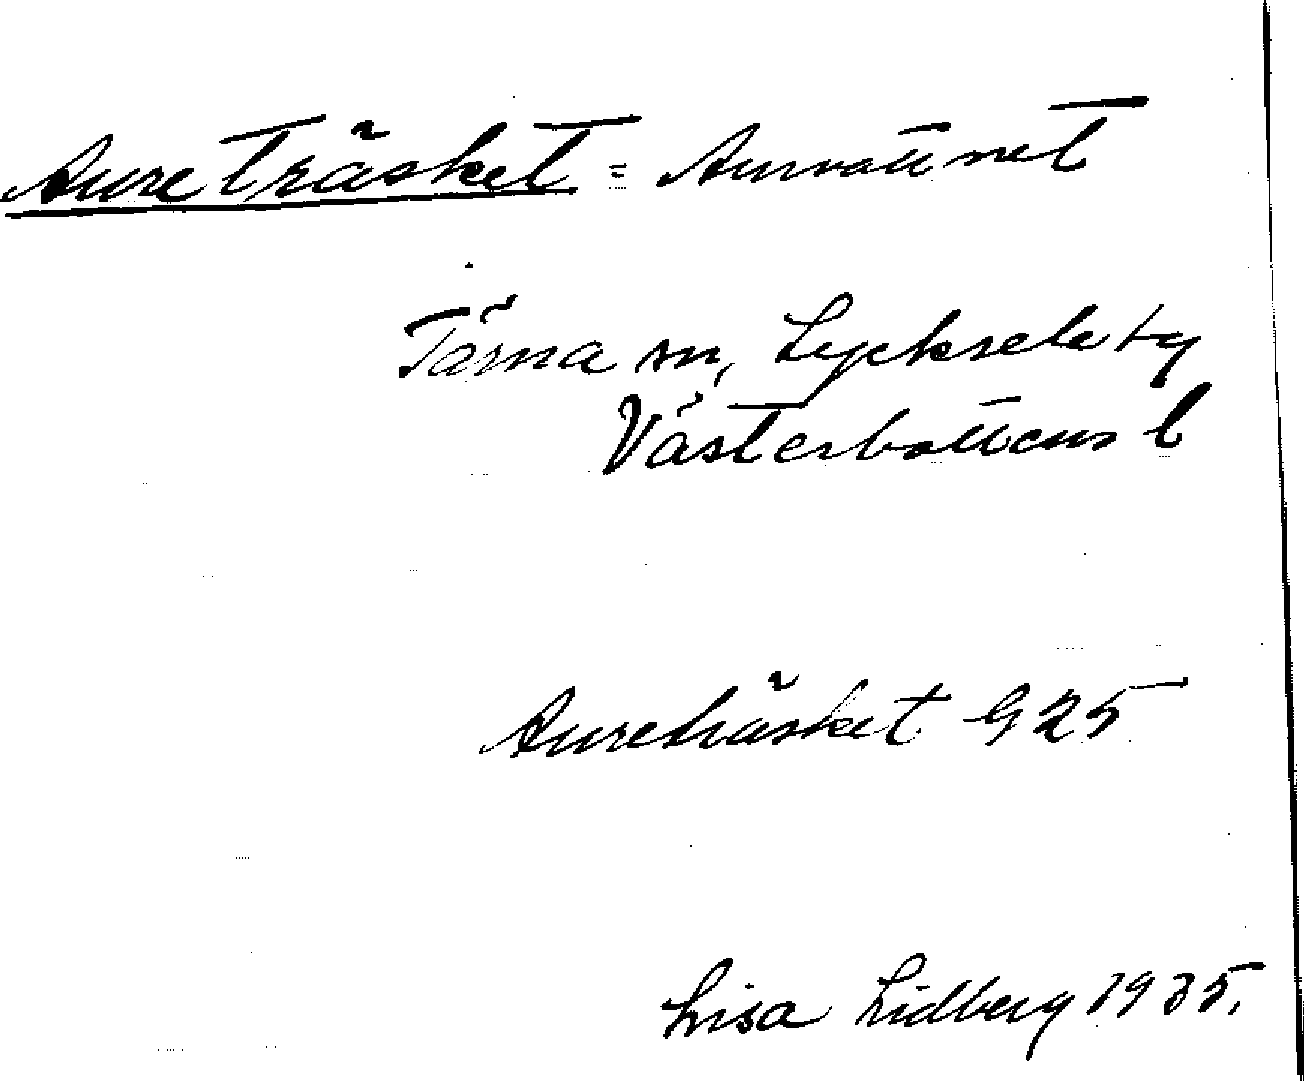 Aureträsket = Aurvattnet
Tärna sn, Lycksele tg
Västerbottens l
Aureträsket G25
Lisa Lidberg 1935.